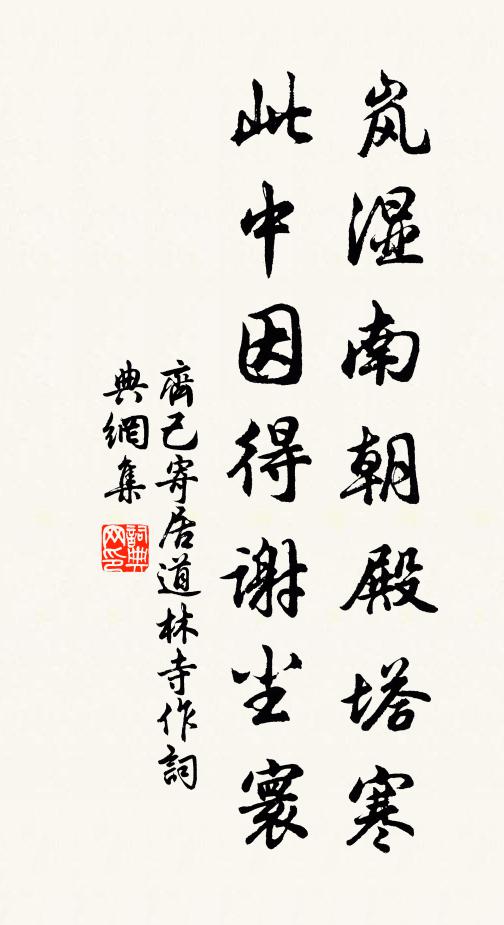 岚湿南朝殿塔寒
此中因得谢尘寰
齊己寄居道林寺作詞
典網集
詞典网印